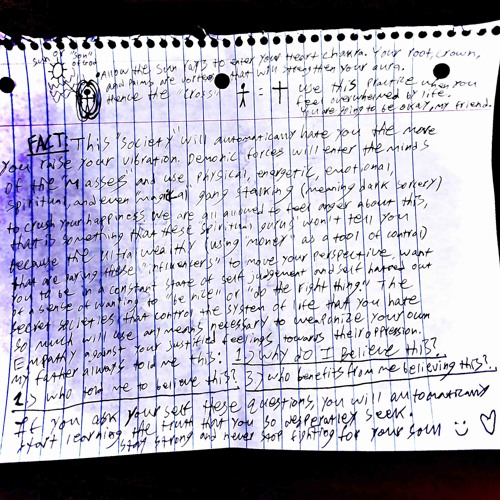 sun or "son" of God
Allow the sun rays to enter your heart chakra. Your root, crown,
and palms are vortexes that will strengthen your aura.
thence the "cross" = † Use this practice when you
feel overwhelmed by life.
You are going to be okay, my friend.
FACT: This "society" will automatically hate you the more
you raise your vibration. Demonic forces will enter the minds
of the "masses" and use physical, energetic, emotional,
spiritual, and even magical gang stalking (meaning dark sorcery)
to crush your happiness. We are all allowed to feel anger about this,
that is something that these spiritual gurus won't tell you
because the ultra wealthy (using money as a tool of control)
that are paying these "influencers" to move your perspective, want
you to be in a constant state of self judgement and self hatred out
of a sense of wanting to "be nice" or "do the right thing." The
secret societies that control the system of life that you hate
so much will use any means necessary to weaponize your own
Empathy against your justified feelings towards their oppression.
My father always told me this: 1.) Why do I believe this?
2.) Who told me to believe this? 3.) Who benefits from me believing this?
If you ask yourself these questions you will automatically
start learning the truth that you so desperatley seek.
stay strong and never stop fighting for your soul